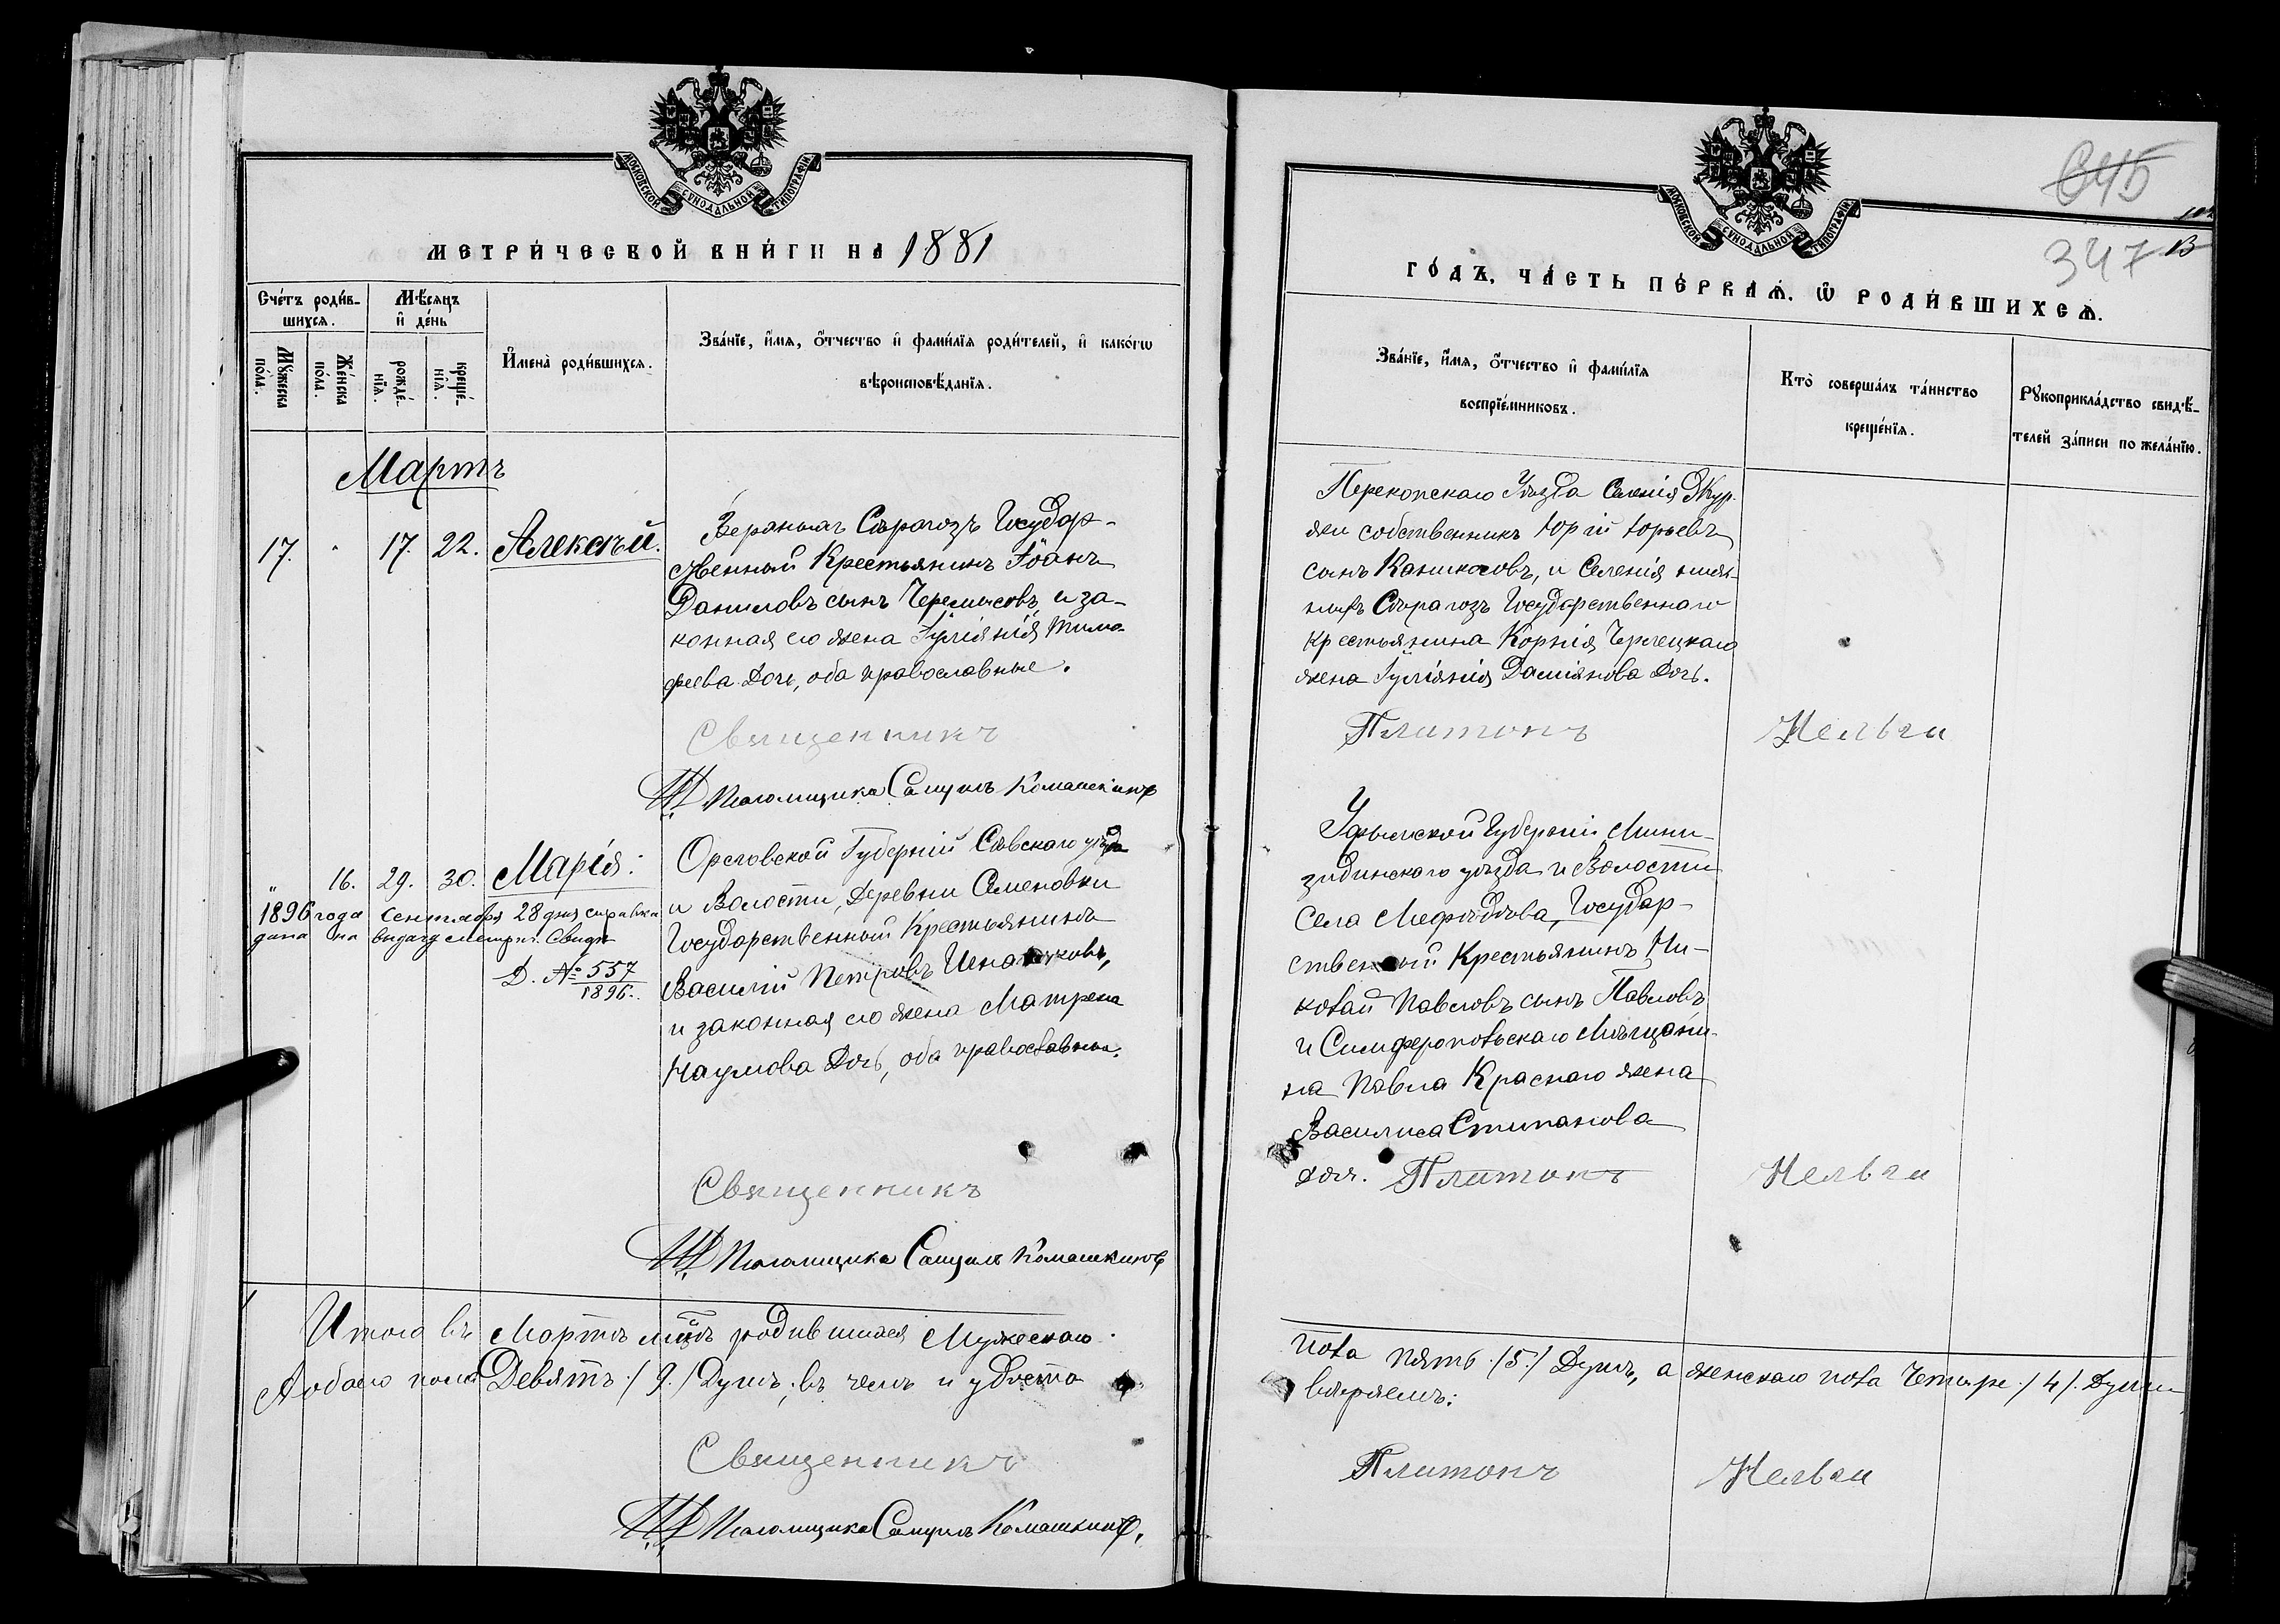 МОСКОВСКОЙ СѴНОДАЛЬНОЙ ТИПОГРАФІИ
МЕТРИ́ЧЕСКОЙ КНИ́ГИ НА 1881
Сче́тъ роди́в-
шихся.
Мѣ́сяцъ
и҆ де́нь
Мꙋ́жеска
по́ла.
Же́нска
по́ла.
рожде́-
нїѧ.
креще́-
нїѧ.
И҆мена̀ роди́вшихсѧ.
Зва́нїе, и҆́мѧ, ѻ҆́тчество и҆ фами́лїѧ роди́телей, и҆ како́гѡ
вѣроисповѣ́данїѧ.
Мартъ
17. " 17. 22. Алексѣй.
Верхныхъ Сѣрогозъ Государ-
ственный Крестьянинъ Іоанъ
Даниловъ сынъ Черемисовъ, и за-
конная его жена Іуліянія Тимо-
феева Дочь, оба православные.
Священникъ
И. Д. Псаломщика Самуилъ Комашкинъ
" 16. 29. 30. Марія:
1896 года Сентября 28 дня справка
дана на выдачу метрич. Свид.
Д. № 557
1896.
Орловской Губерніи Сѣвскаго уѣзда
и Волости, Деревни Семеновки
Государственный Крестьянинъ
Василій Петровъ
и законная его жена Матрена
Наумова Дочь, оба православные.
Священникъ
И. Д. Псаломщика Самуилъ Комашкинъ
Итого въ Мартѣ мцѣ родившихся Мужескаго
Аобоего пола Девять /9./ Душъ; въ чемъ и удосто
Священникъ
И. Д. Псаломщика Самуилъ Комашкинъ.
МОСКОВСКОЙ СѴНОДАЛЬНОЙ ТИПОГРАФІИ
645
347
ГО́ДЪ, ЧА́СТЬ ПЕ́РВАѦ, Ѡ҆ РОДИ́ВШИХСѦ.
Зва́нїе, и҆́мѧ, ѻ҆́тчество и҆ фами́лїѧ
воспрїе́мниковъ.
Кто̀ соверша́лъ та́инство
креще́нїѧ.
Рꙋкоприкла́дство свидѣ́-
телей за́писи по жела́нїю.
Перекопскаго Уѣзда Селенія Джур-
жи собственникъ Юрій Юрьевъ
сынъ Канишосовъ, и Селенія ниж-
нихъ Сѣрагозъ Государственнаго
крестьянина Корнія Чернецкаго
жена Іуліянія Даміянова Дочь.
Платонъ Нельги
Уфымской Губерніи Мини-
зидинскаго уѣзда и Волости
Села Мефодіова, Государ-
ственный Крестьянинъ Ни-
колай Павловъ сынъ Павловъ
и Симферопольскаго Мѣщани-
на Павла Краснаго жена
Василиса Стипанова
доч. Платонъ Нельги
пола пять /5./ Душъ, а женскаго пола Четыре /4/. Души
вѣряемъ:
Платонъ Нельги